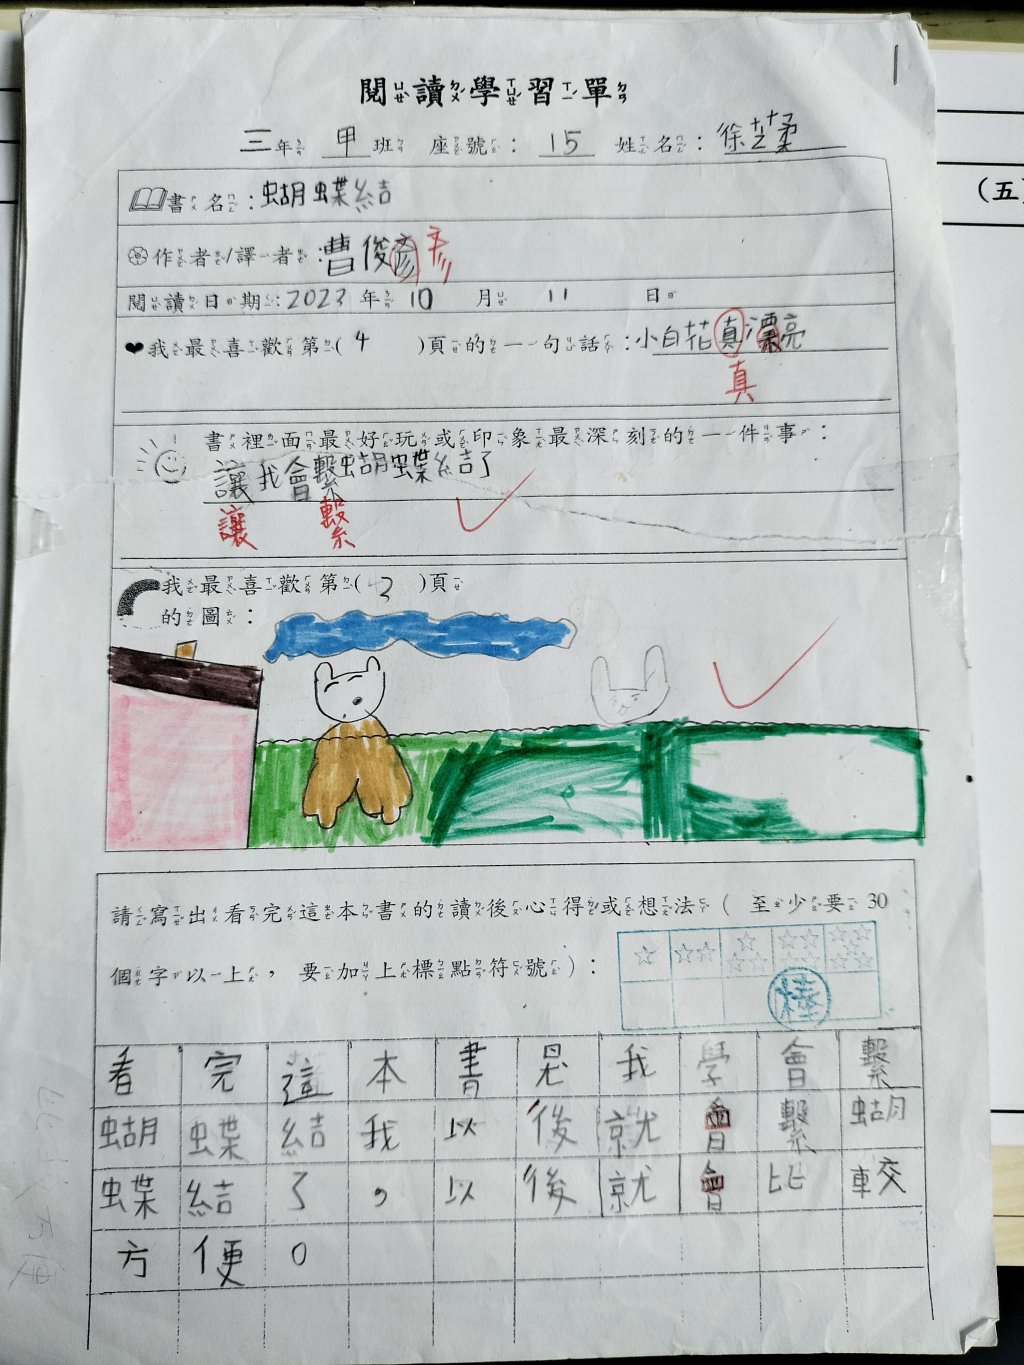 閱讀學習單
三年甲班 座號：15 姓名：徐芷柔
書名：蝴蝶結
作者/譯者：曹俊彥 彥
閱讀日期：2023年10月11日
我最喜歡第(4)頁的一句話：小白花真漂亮
真
書裡面最好玩或印象最深刻的一件事：
讓我會繫蝴蝶結了
讓 繫
我最喜歡第(3)頁
的圖：
請寫出看完這本書的讀後心得或想法(至少要30
個字以上，要加上標點符號)：
棒
看完這本書是我學會繫
蝴蝶結我以後就會繫蝴
蝶結了，以後就會比較
方便。
(五)